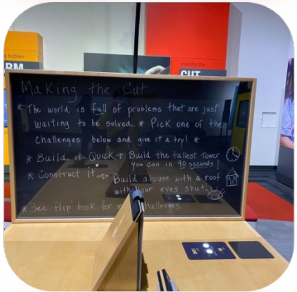 Making the Cut
* The world is full of problems that are just
waiting to be solved. * Pick one of them
challenges below and give it a try! *
* Build it Quick → Build the tallest tower
you can in 90 seconds
* Construct it → Build a house with a roof
with your eyes shut.
* See flip book for challenges.
CUT